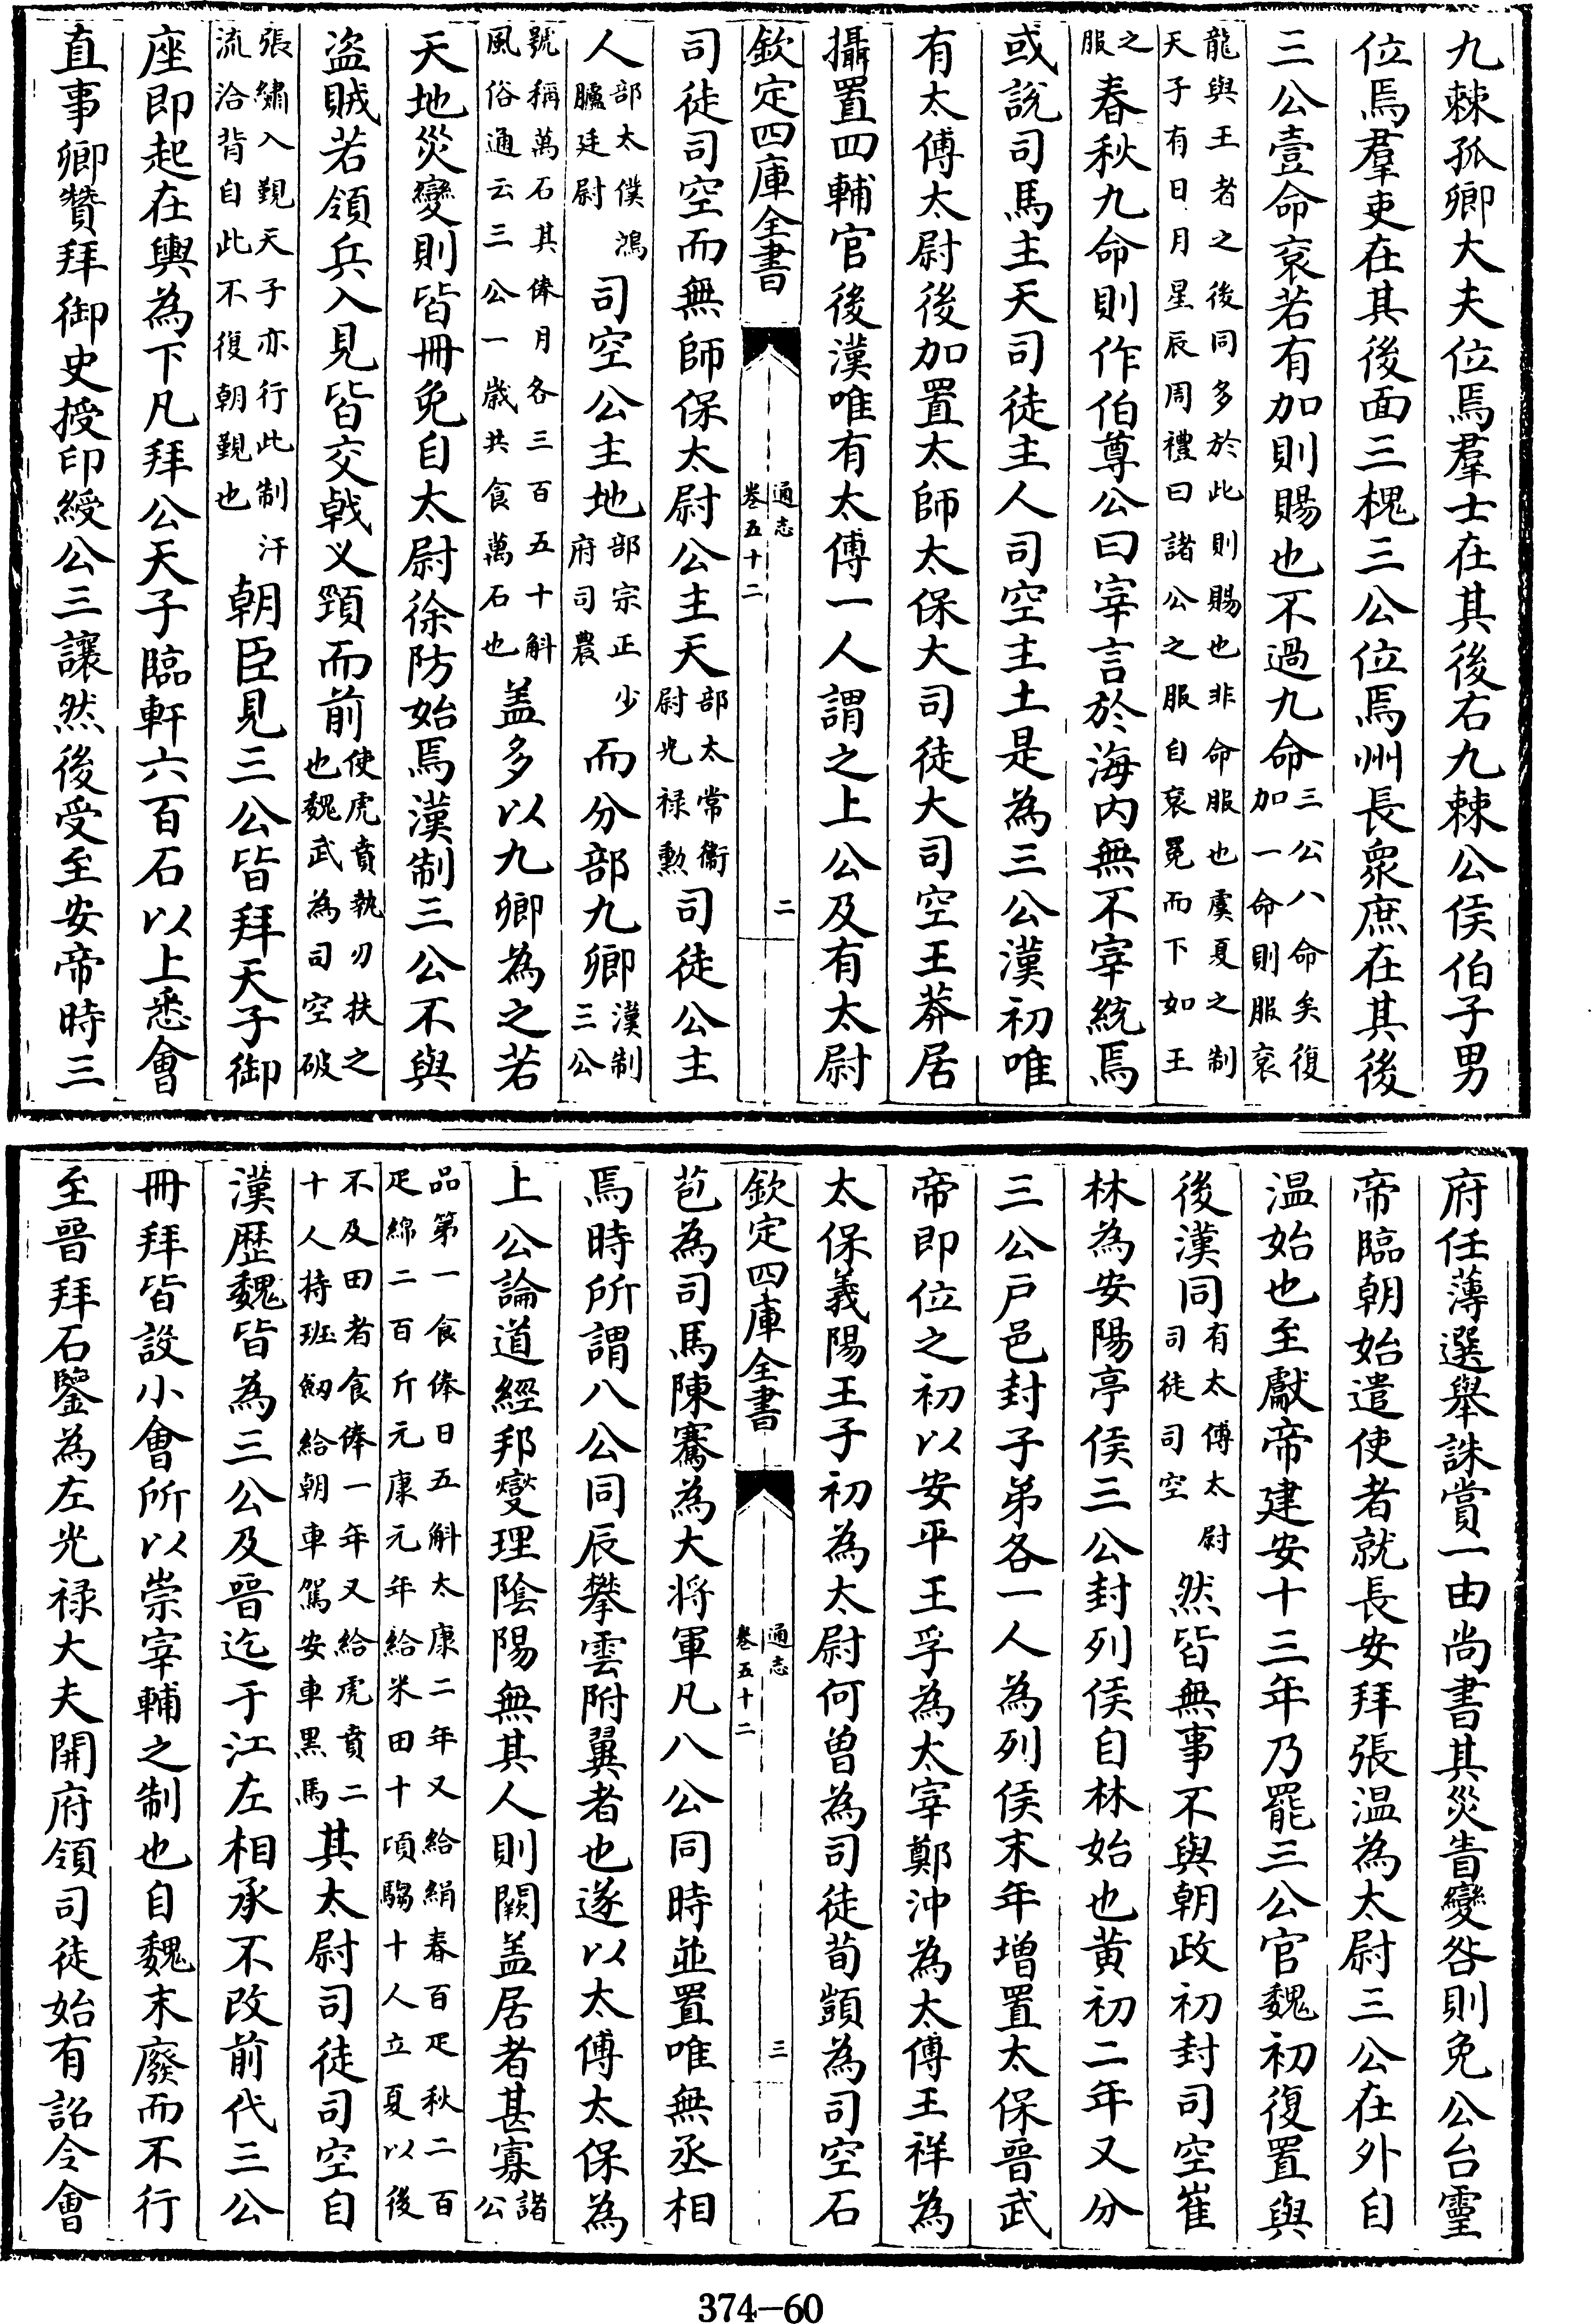 九棘孤卿大夫位焉羣士在其後右九棘公侯伯子男
位焉羣吏在其後面三槐三公位焉州長衆庶在其後
三公壹命衮若有加則賜也不過九命三公八命矣復加一命則服衮
龍與王者之後同多於此則賜也非命服也虞夏之制天子有日月星辰周禮曰諸公之服自衮冕而下如王
之服春秋九命則作伯尊公曰宰言於海内無不宰統焉
或說司馬主天司徒主人司空主土是為三公漢初唯
有太傅太尉後加置太師太保大司徒大司空王莽居
攝置四輔官後漢唯有太傅一人謂之上公及有太尉
欽定四庫全書
通志
卷五十二
二
司徒司空而無師保太尉公主天部太常衞尉光禄勲司徒公主
人部太僕鴻臚廷尉司空公主地部宗正少府司農而分部九卿漢制三公
號稱萬石其俸月各三百五十斛風俗通云三公一歲共食萬石也盖多以九卿為之若
天地災變則皆冊免自太尉徐防始焉漢制三公不與
盗賊若領兵入見皆交戟义頸而前使虎賁執刃扶之也魏武為司空破
張繡入覲天子亦行此制汗流洽背自此不復朝覲也朝臣見三公皆拜天子御
座即起在輿為下凡拜公天子臨軒六百石以上悉會
直事卿贊拜御史授印綬公三讓然後受至安帝時三
府任薄選舉誅賞一由尚書其災眚變咎則免公台靈
帝臨朝始遣使者就長安拜張温為太尉三公在外自
温始也至獻帝建安十三年乃罷三公官魏初復置與
後漢同有太傅太尉司徒司空然皆無事不與朝政初封司空崔
林為安陽亭侯三公封列侯自林始也黄初二年又分
三公户邑封子弟各一人為列侯末年増置太保晉武
帝即位之初以安平王孚為太宰鄭沖為太傅王祥為
太保義陽王子初為太尉何曽為司徒荀顗為司空石
欽定四庫全書
通志
卷五十二
三
苞為司馬陳騫為大将軍凡八公同時並置唯無丞相
焉時所謂八公同辰攀雲附翼者也遂以太傅太保為
上公論道經邦燮理陰陽無其人則闕盖居者甚寡諸公
品第一食俸日五斛太康二年又給絹春百疋秋二百疋綿二百斤元康元年給米田十頃騶十人立夏以後
不及田者食俸一年又給虎賁二十人持班劔給朝車駕安車黒馬其太尉司徒司空自
漢歴魏皆為三公及晉迄于江左相承不改前代三公
冊拜皆設小會所以崇宰輔之制也自魏末廢而不行
至晉拜石鑒為左光禄大夫開府領司徒始有詔令會
374-60